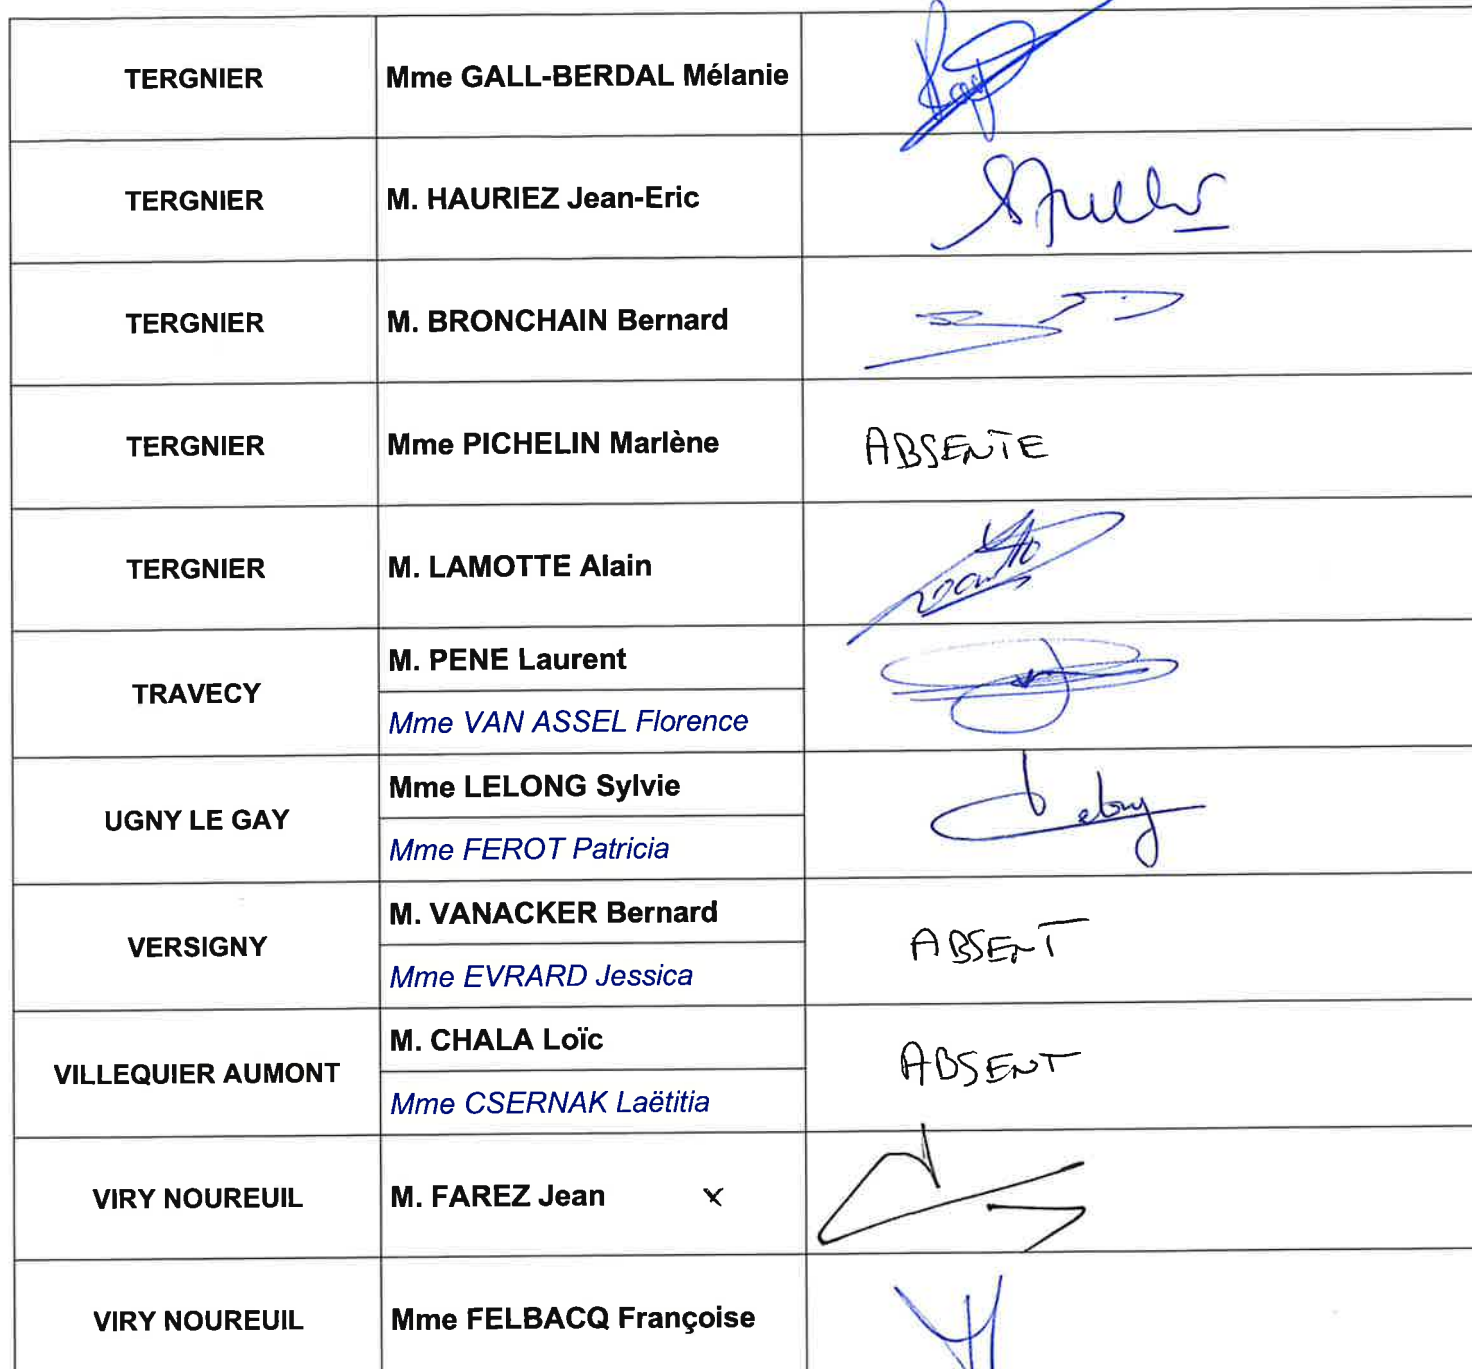 TERGNIER Mme GALL-BERDAL Mélanie
TERGNIER M. HAURIEZ Jean-Eric
TERGNIER M. BRONCHAIN Bernard
TERGNIER Mme PICHELIN Marlène ABSENTE
TERGNIER M. LAMOTTE Alain
M. PENE Laurent
TRAVECY
Mme VAN ASSEL Florence
Mme LELONG Sylvie
UGNY LE GAY
Mme FEROT Patricia
M. VANACKER Bernard
VERSIGNY ABSENT
Mme EVRARD Jessica
M. CHALA Loïc
VILLEQUIER AUMONT ABSENT
Mme CSERNAK Laëtitia
VIRY NOUREUIL M. FAREZ Jean x
VIRY NOUREUIL Mme FELBACQ Françoise